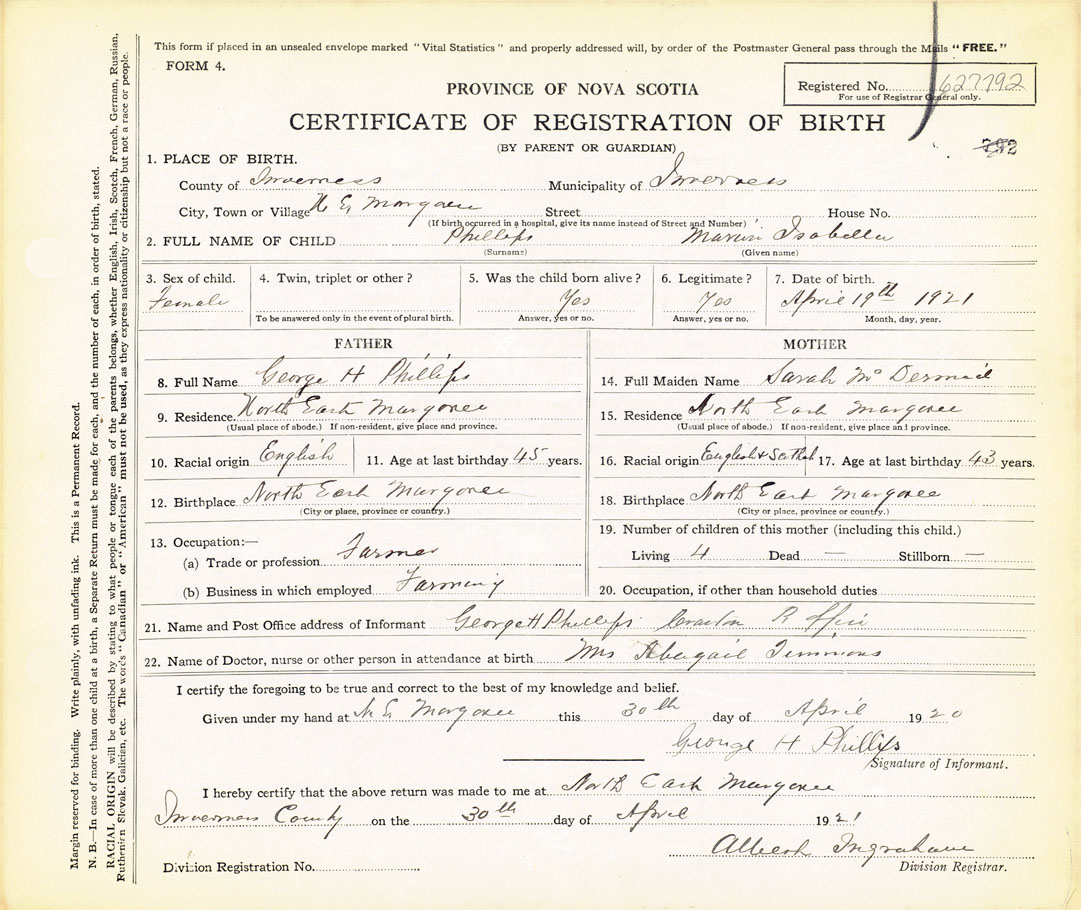 This form if placed in an unsealed envelope marked "Vital Statistics" and properly addressed will, by order of the Postmaster General pass through the Mails "FREE."
FORM 4.
Registered No. 627792
For use of Registrar General only.
PROVINCE OF NOVA SCOTIA
CERTIFICATE OF REGISTRATION OF BIRTH
(BY PARENT OR GUARDIAN)
792
1. PLACE OF BIRTH.
County of Inverness Municipality of Inverness
City, Town or Village N E Margaree Street House No.
(If birth occurred in a hospital, give its name instead of Street and Number)
2. FULL NAME OF CHILD Phillips Isabella
(Surname) (Given name)
3. Sex of child. 4. Twin, triplet or other? 5. Was the child born alive? 6. Legitimate? 7. Date of birth.
Female Yes Yes April 19th 1921
To be answered only in the event of plural birth. Answer, yes or no. Answer, yes or no. Month, day, year.
FATHER MOTHER
8. Full Name George H Phillips 14. Full Maiden Name Sarah Mc Dermid
9. Residence. North East Margaree 15. Residence North East Margaree
(Usual place of abode.) If non-resident, give place and province. (Usual place of abode.) If non-resident, give place and province.
10. Racial origin English 11. Age at last birthday 45 years. 16. Racial origin English & Scotch 17. Age at last birthday 43 years.
12. Birthplace North East Margaree 18. Birthplace North East Margaree
(City or place, province or country.) (City or place, province or country.)
13. Occupation:— 19. Number of children of this mother (including this child.)
(a) Trade or profession Farmer Living 4 Dead — Stillborn —
(b) Business in which employed Farming 20. Occupation, if other than household duties
21. Name and Post Office address of Informant George H Phillips
22. Name of Doctor, nurse or other person in attendance at birth Mrs Abegail Timmons
I certify the foregoing to be true and correct to the best of my knowledge and belief.
Given under my hand at N. E Margaree this 30th day of April 1920
George H Phillips
Signature of Informant.
I hereby certify that the above return was made to me at North East Margaree
Inverness County on the 30th day of April 1921
Albert Ingraham
Division Registration No. Division Registrar.
Margin reserved for binding. Write plainly, with unfading ink. This is a Permanent Record.
N. B.—In case of more than one child at a birth, a Separate Return must be made for each, and the number of each, in order of birth, stated.
RACIAL ORIGIN will be described by stating to what people or tongue each of the parents belongs, whether English, Irish, Scotch, French, German, Russian,
Ruthenian Slovak, Galician, etc. The words "Canadian" or "American" must not be used, as they express nationality or citizenship but not a race or people.